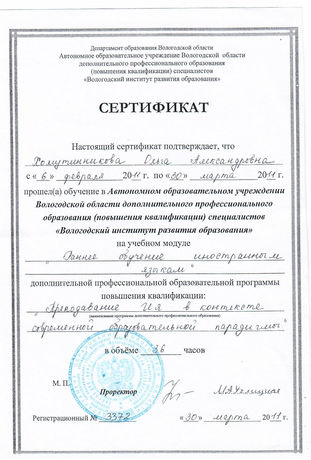 Департамент образования Вологодской области
Автономное образовательное учреждение Вологодской области
дополнительного профессионального образования
(повышения квалификации) специалистов
«Вологодский институт развития образования»
СЕРТИФИКАТ
Настоящий сертификат подтверждает, что
Хомутинникова Ольга Александровна
с «6» февраля 2011 г. по «30» марта 2011 г.
прошел(а) обучение в Автономном образовательном учреждении
Вологодской области дополнительного профессионального
образования (повышения квалификации) специалистов
«Вологодский институт развития образования»
на учебном модуле
"Раннее обучение иностранным
языкам"
дополнительной профессиональной образовательной программы
повышения квалификации:
"Преподавание ИЯ в контексте
(наименование программы дополнительного профессионального образования)
современной образовательной парадигмы"
в объёме 36 часов
М. П.
Проректор
Регистрационный № 3372 «30» марта 2011 г.